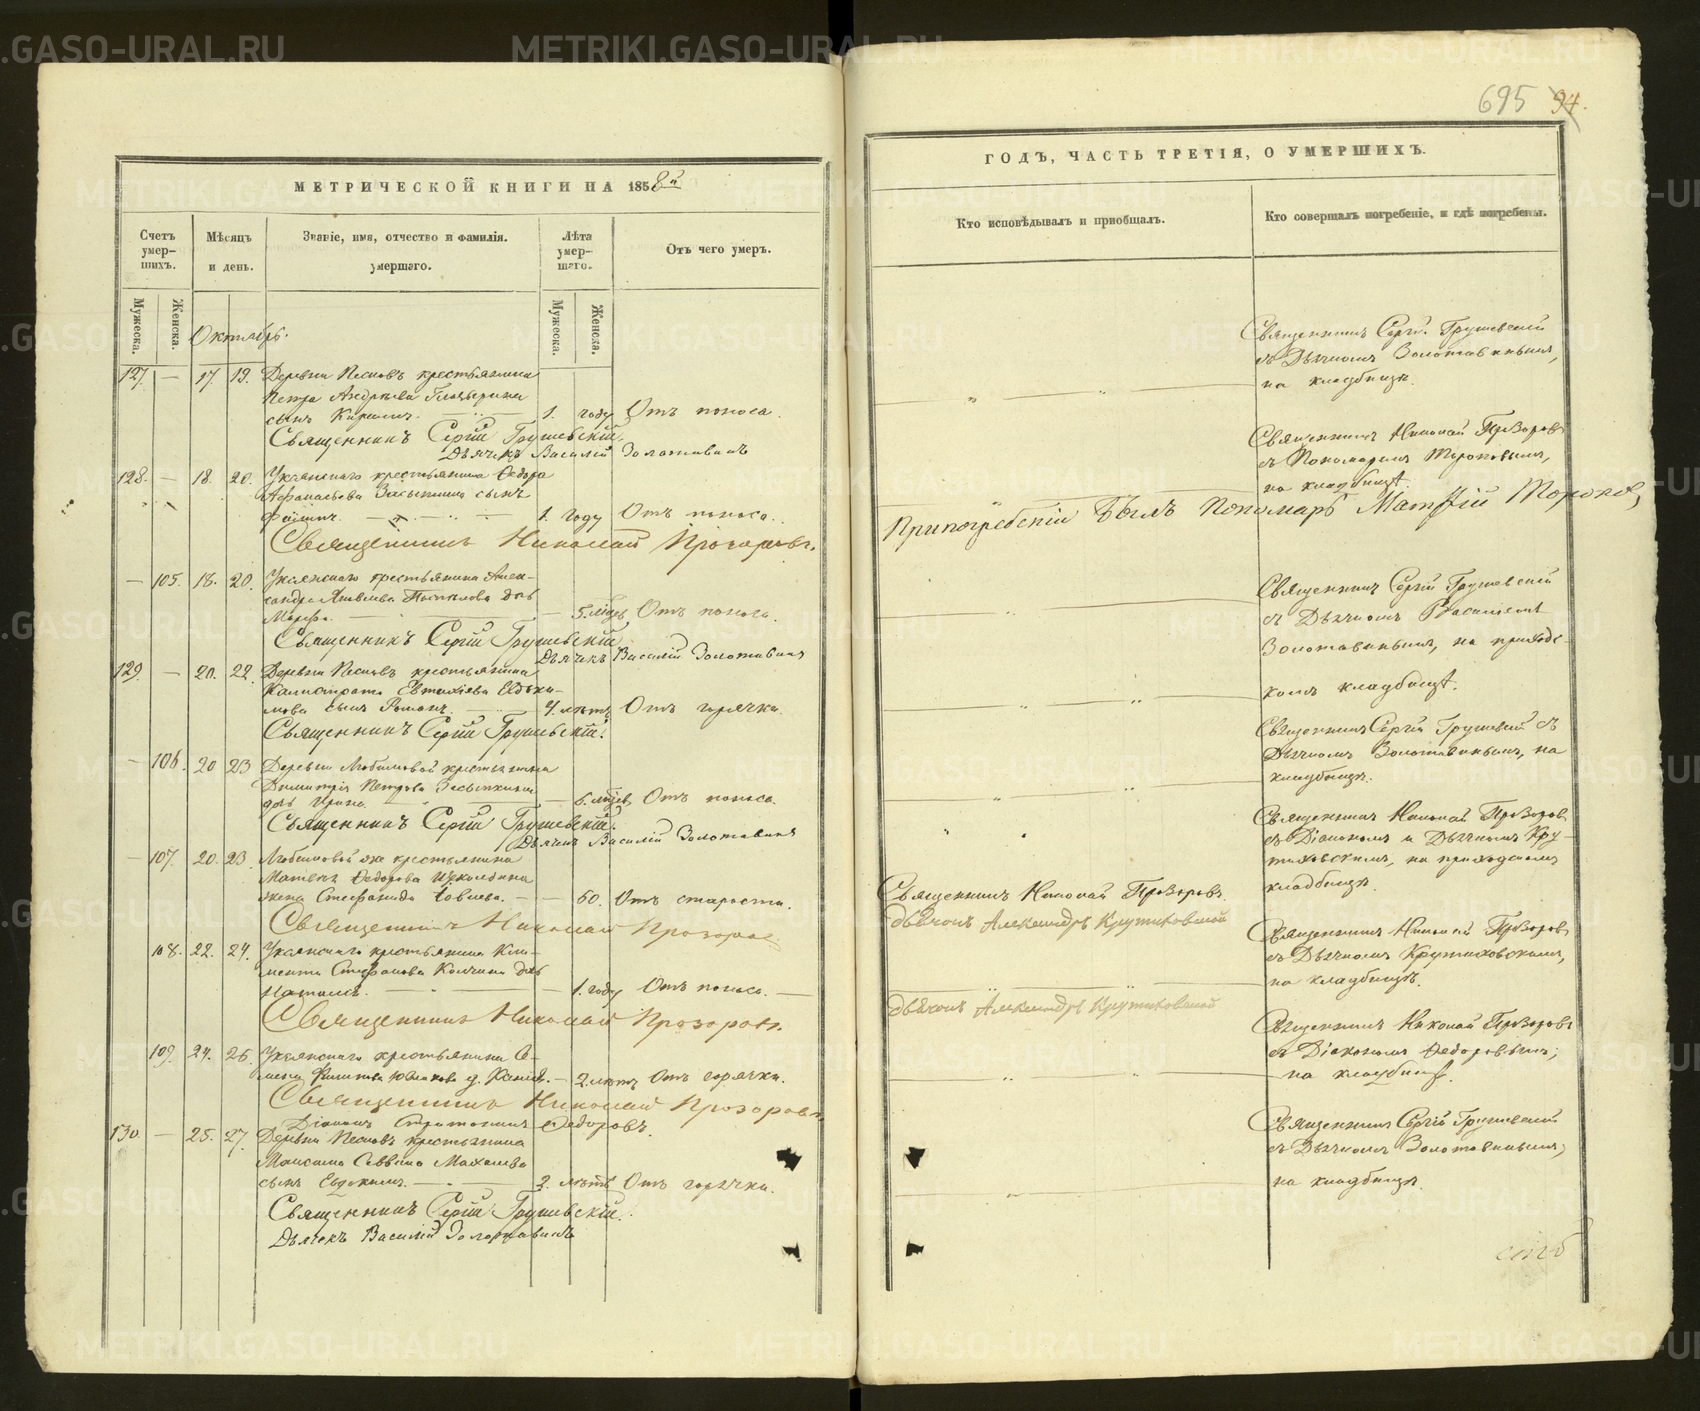 695 94.
МЕТРИЧЕСКОЙ КНИГИ НА 1858й
Счетъ умер-шихъ.
Мужеска.
Женска.
Мѣсяцъ и день.
Званіе, имя, отчество и фамилія умершаго.
Лѣта умер-шаго.
Мужеска.
Женска.
Отъ чего умеръ.
Октябрь.
127. — 17. 19. Деревни Песковъ крестьянина
Петра Андреева
сынъ — 1. году Отъ поноса.
Священникъ Сергій Грушевскій.
Дьячекъ Василій Золотавинъ
128. — 18. 20. Уксянскаго крестьянина Ѳедора
Афанасьева Засыпкина сынъ
— 1. году Отъ поноса.
Священникъ Николай Прозоровъ.
— 105. 18. 20. Уксянскаго крестьянина Алек-
сандра Яковлева дочь
Марѳа. — 5. Отъ поноса.
Священникъ Сергій Грушевскій
Дьячекъ Василій Золотавинъ
129. — 20. 22. Деревни Песковъ крестьянина
Калистрата Евдоки-
мова сынъ Романъ. — 4. лѣтъ Отъ горячки.
Священникъ Сергій Грушевскій.
— 106. 20 23 Деревни Любимовой крестьянина
Димитрія Петрова Засыпкина
дочь Ирина. — Отъ поноса.
Священникъ Сергій Грушевскій.
Дьячекъ Василій Золотавинъ
— 107. 20. 23. Любимовой же крестьянина
Матвѣя Ѳедорова
жена Стефанида — 60. Отъ старости.
Священникъ Николай Прозоровъ
108. 22. 24. Уксянскаго крестьянина Кли-
мента Стефанова дочь
Наталія. — 1. году Отъ поноса. —
Священникъ Николай Прозоровъ.
109. 24. 26. Уксянскаго крестьянина Се-
мена — 2. лѣтъ Отъ горячки.
Священникъ Николай Прозоровъ.
Діаконъ Ѳедоровъ.
130 — 25. 27. Деревни Песковъ крестьянина
Максима Саввина
сынъ Евдокимъ. — 2. лѣтъ Отъ горячки.
Священникъ Сергій Грушевскій.
Дьячекъ Василій Золотавинъ
ГОДЪ, ЧАСТЬ ТРЕТІЯ, О УМЕРШИХЪ.
Кто исповѣдывалъ и приобщалъ.
Кто совершалъ погребеніе, и гдѣ погребены.
Священникъ Сергій Грушевскій
съ Дьячкомъ Золотавинымъ,
на кладбищѣ.
Священникъ Николай Прозоровъ
съ Пономаремъ Тороповымъ,
на кладбищѣ.
При погребеніи былъ Пономарь Матѳій Тороповъ,
Священникъ Сергій Грушевскій
съ Дьячкомъ Василіемъ
Золотавинымъ, на приходс-
комъ кладбищѣ.
Священникъ Сергій Грушевскій съ
Дьячкомъ Золотавинымъ, на
кладбищѣ.
Священникъ Николай Прозоровъ
съ Діакономъ и Дьячкомъ Кру-
тиховскимъ, на приходскомъ
кладбищѣ.
Священникъ Николай Прозоровъ
Дьячокъ Александръ Крутиховской
Священникъ Николай Прозоровъ
съ Дьячкомъ Крутиховскимъ,
на кладбищѣ.
Дьячокъ Александръ Крутиховской
Священникъ Николай Прозоровъ
съ Діакономъ Ѳедоровымъ,
на кладбищѣ.
Священникъ Сергій Грушевскій
съ Дьячкомъ Золотавинымъ,
на кладбищѣ.
METRIKI.GASO-URAL.RU